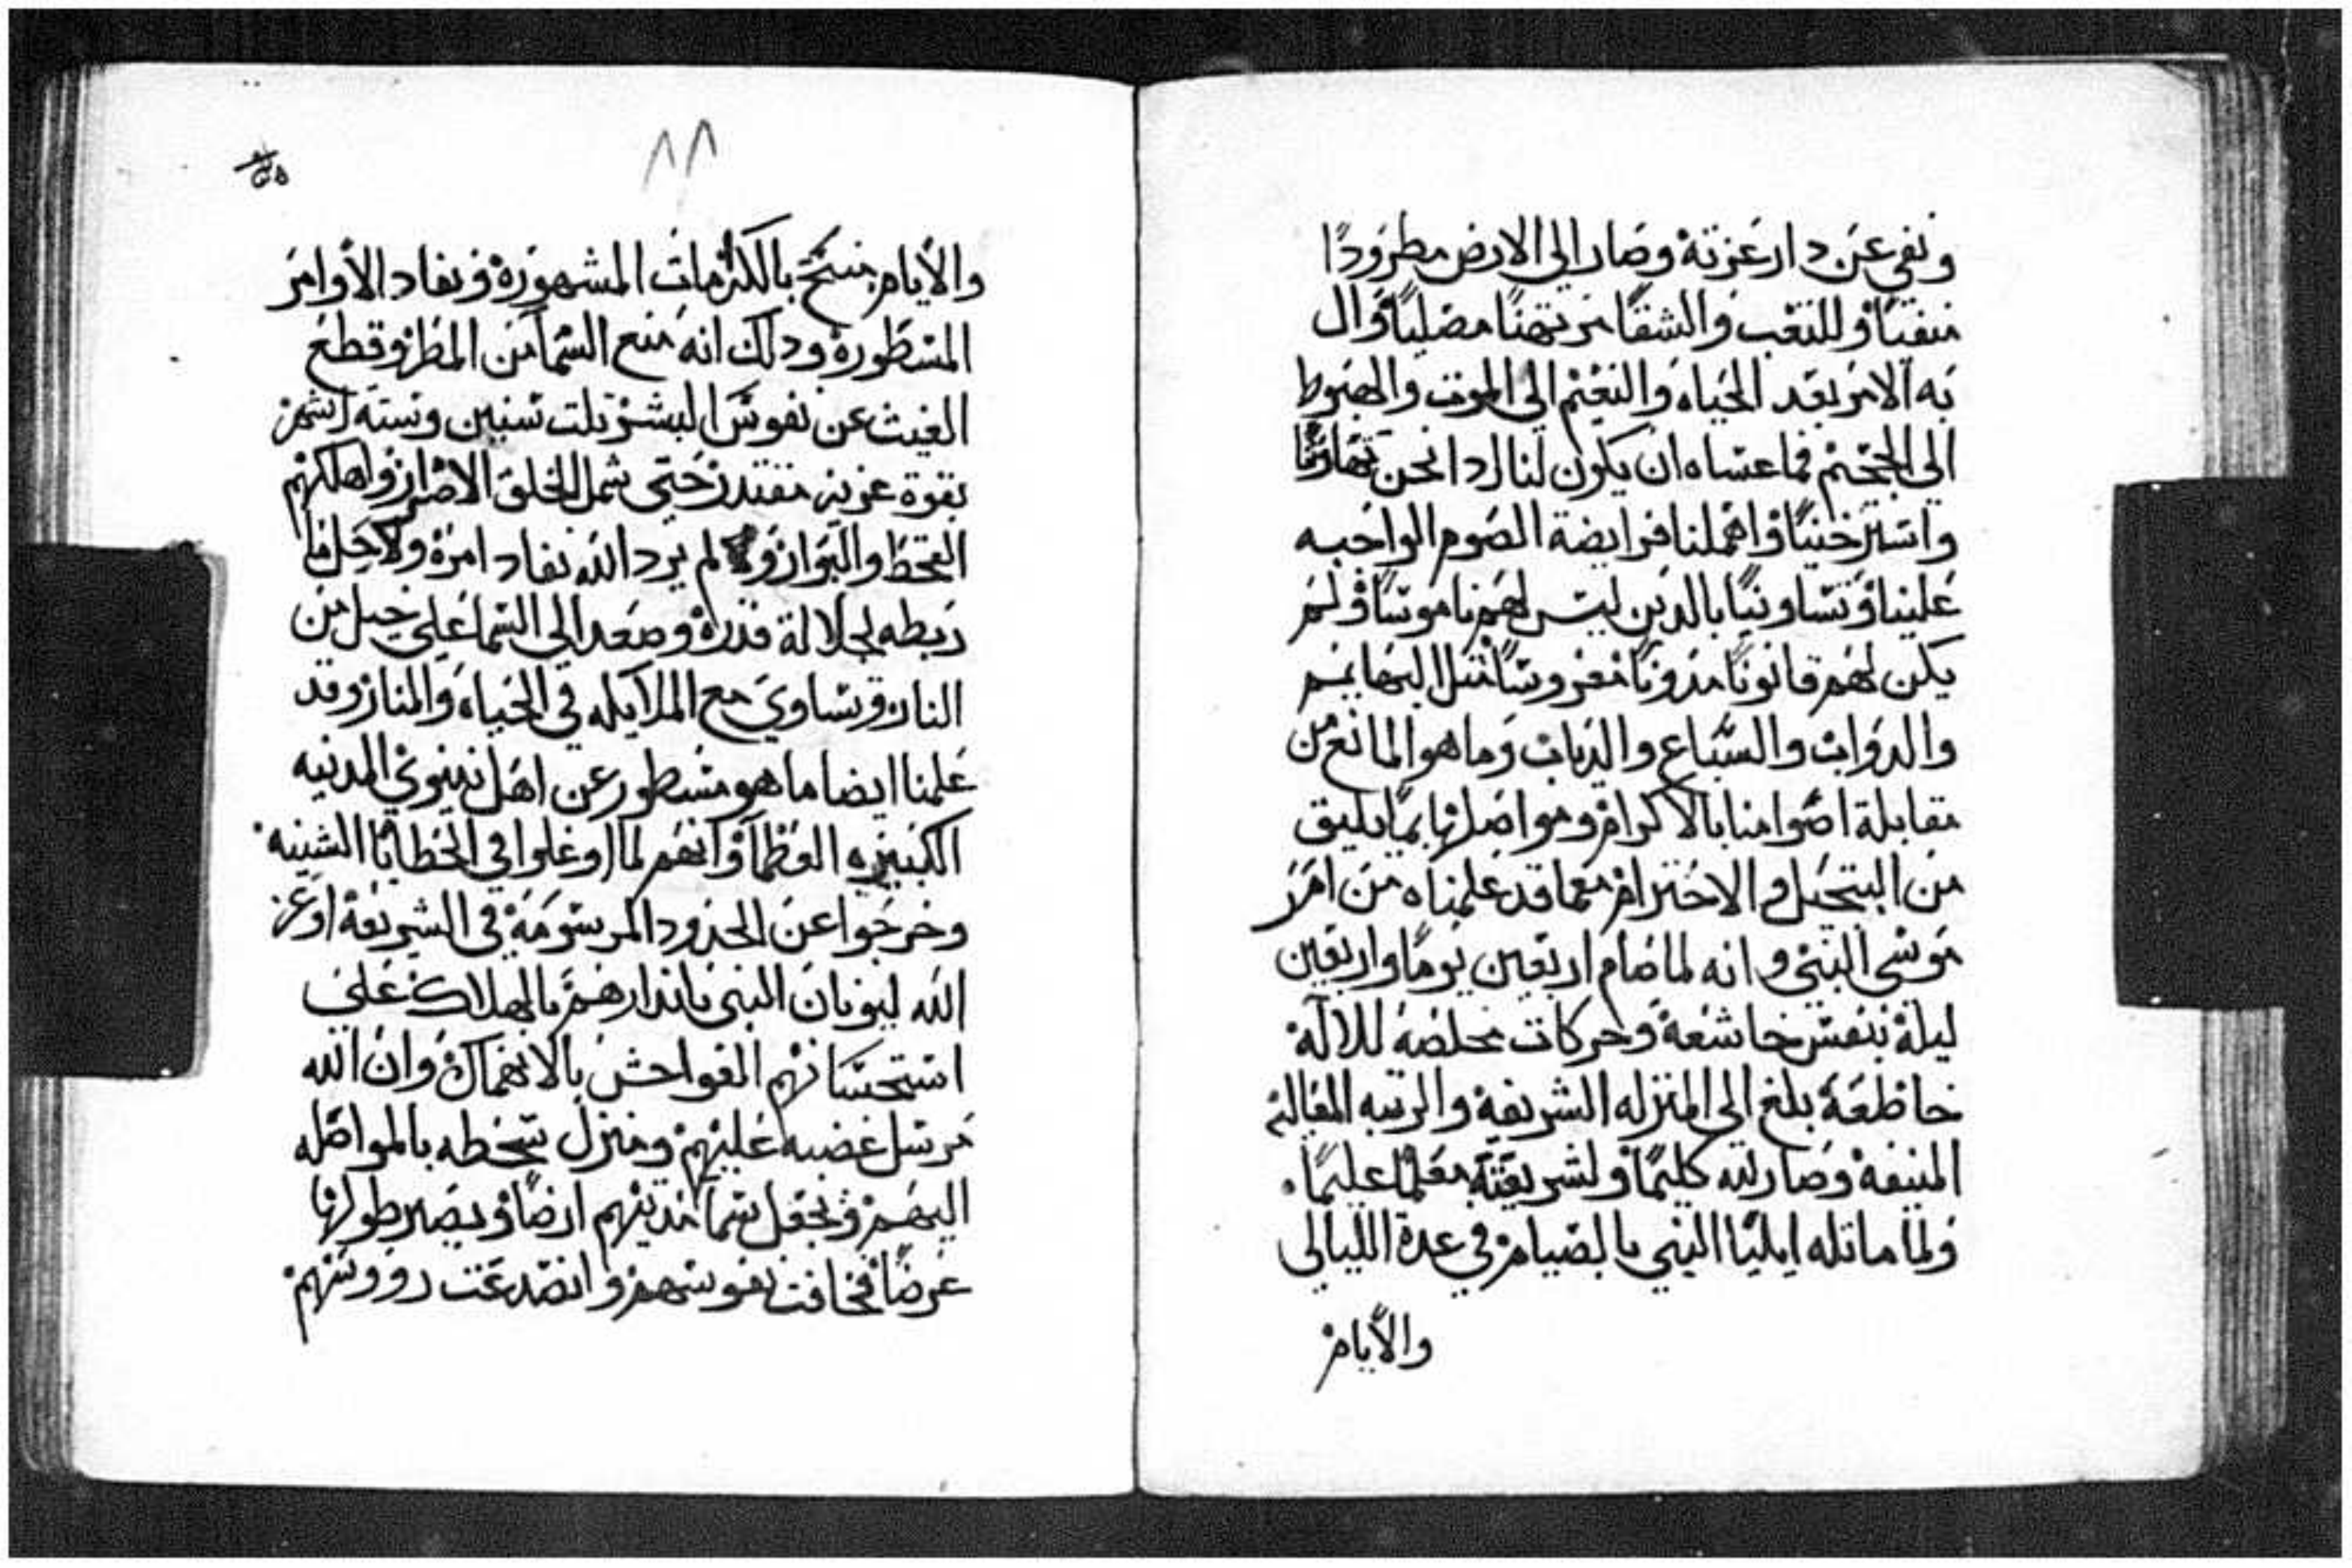 ونفي عن دار عزته وصار الى الارض مطرودًا
منفيًا وللتعب والشقا مرتهنًا مصليًا وال
به الامر بعد الحياه والنعيم الى الموت والهبوط
الى الجحيم فما عساه ان يكون لنا اذا نحن تهاونّا
واسترخينا واهملنا فرايضة الصوم الواجبه
علينا وتساوينا بالدين ليس لهم ناموسًا ولم
يكن لهم قانونًا مدونًا مفروسًا مثل البهايم
والدواب والسباع والدياب وما هو المانع من
مقابلة اصوامنا بالاكرام ومواصلتها بما يليق
من التبجيل والاحترام معما قد علمناه من امر
موسى النبي وانه لما صام اربعين يومًا واربعين
ليلة بنفس خاشعة وحركات مخلصة للاله
خاظعة بلغ الى المنزله الشريفة والرتبه العالية
المنيفة وصار لله كليمًا ولشريعته معلمًا عليمًا.
ولما ماتله ايليا النبي بالصيام في عدة الليالي
والايام
٨٨
والايام منح بالكرمات المشهورة ونفاد الأوامر
المسطورة ودلك انه منع السما من المطر وقطع
الغيث عن نفوس البشر تلت سنين وسته اشهر
بقوة عزيز مقتدر حتى شمل الخلق الاضرار واهلكهم
القحط والبوار ولم يرد الله نفاد امرة ولا حل ما
ربطه لجلالة قدرة وصعد الى السما على خيل من
النار وتساوي مع الملايكه في الحياه والمنار وقد
علمنا ايضا ما هو مسطور عن اهل نينوي المدينه
الكبيره العظما وانهم لما اوغلوا في الخطايا الشنيه
وخرجوا عن الحدود المرسومة في الشريعة اوعز
الله ليونان النبي بانذارهم بالهلاك على
استحسانهم الفواحش بالانهماك وان الله
مرسل غضبه عليهم ومنزل سخطه بالمواصله
اليهم وتجعل سما مدينهم ارضًا ويصير طولها
عرضًا فخافت نفوسهم وانصدعت رووسهم